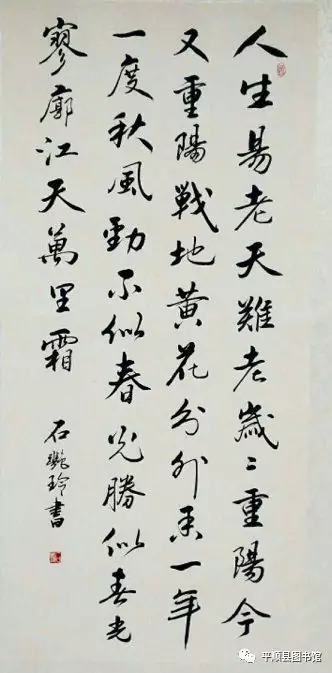 人生易老天難老歲〻重陽今
又重陽戰地黃花分外香一年
一度秋風勁不似春光勝似春光
寥廓江天萬里霜
石艷玲書
平顺县图书馆